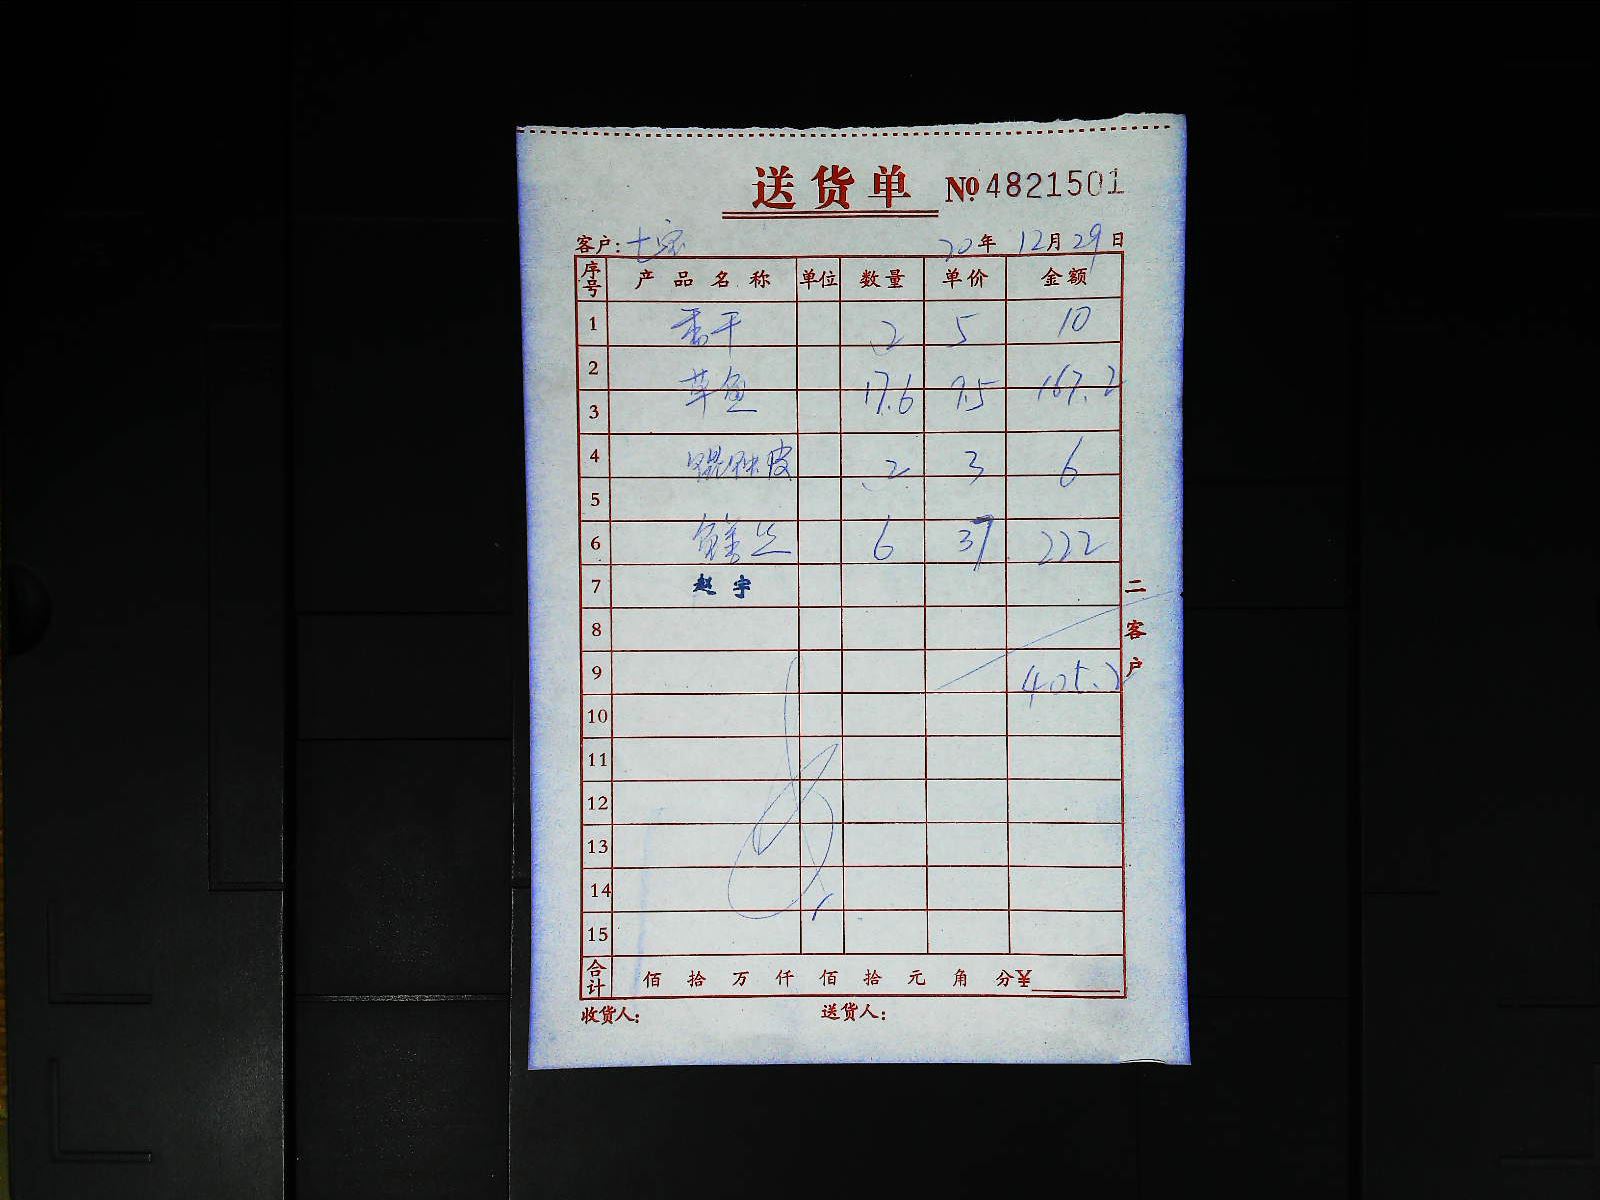 送货单 №4821501
客户: 七宝 20年12月29日
序号 产品名称 单位 数量 单价 金额
1 香干 2 5 10
2
草鱼 17.6 9.5 167.2
3
4 馄饨皮 2 3 6
5
6 6 37 222
7 赵宇
8
9 405.2
10
11
12
13
14
15
合计 佰拾万仟佰拾元角分¥
收货人: 送货人:
二客户